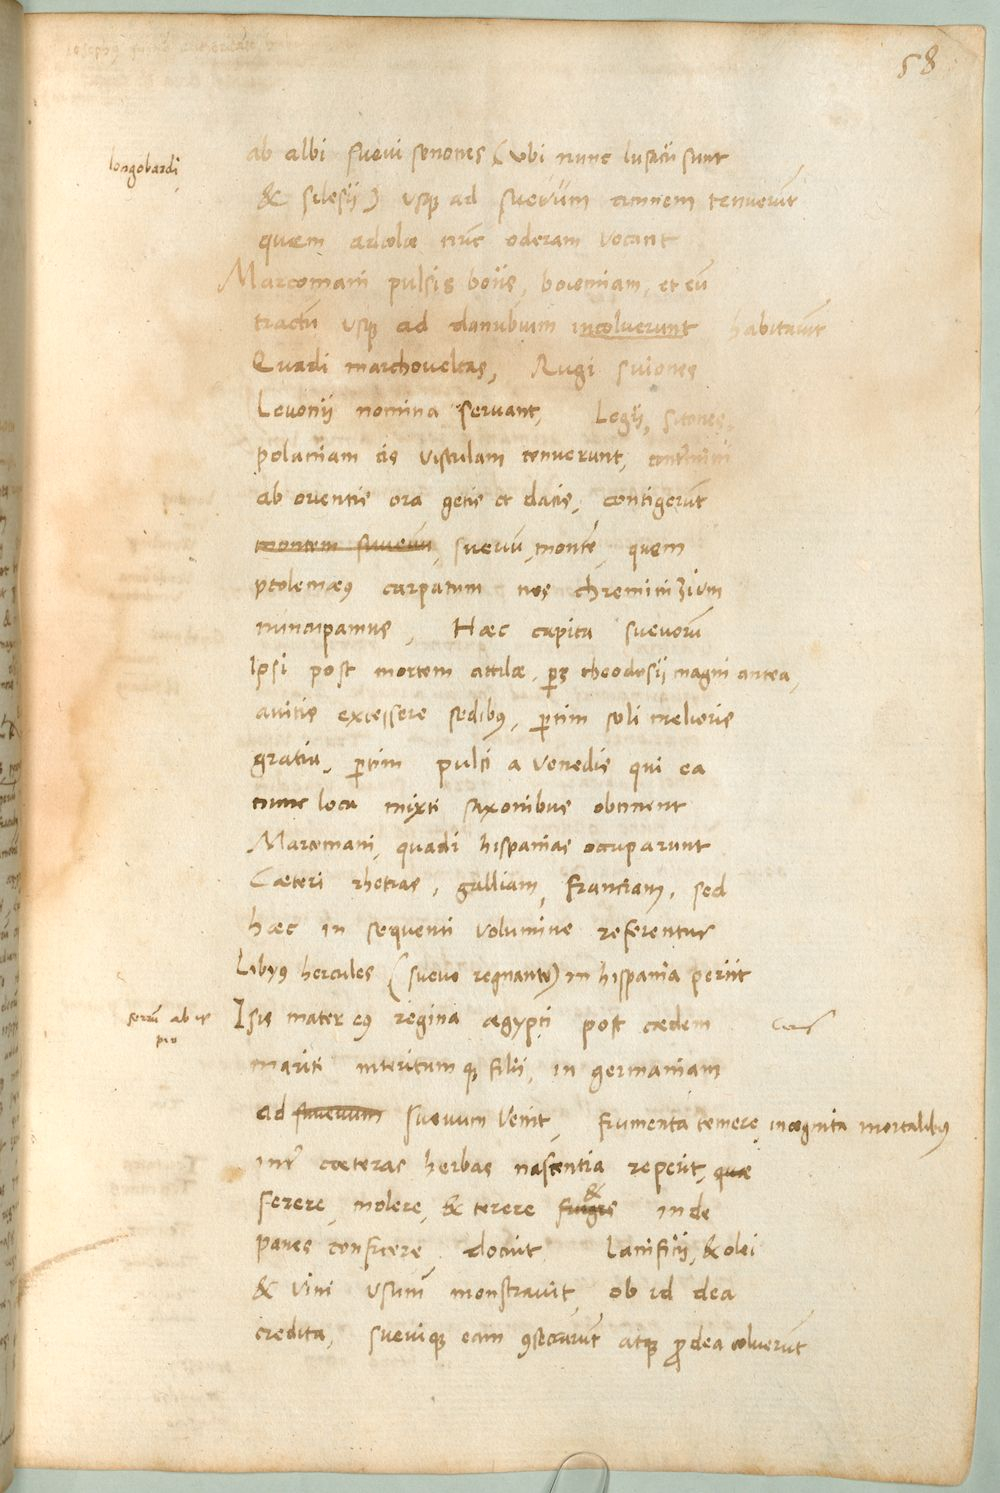 58
longobardi
ab albi suevi senones (ubi nunc lusacii sunt
& slesii) usq; ad suevum amnem tenuerūt
quem adcolæ nūc oderam vocant
Marcomani pulsis boiis, boiemiam, et eū
tractū usq; ad danubium incoluerunt habitaverūt
Quadi marchoveltas, Rugi suiones
Levonii nomina servant, Legii, sitones,
polaniam cis vistulam tenuerunt, confinii
ab orientis ora getis et dacis, contigerūt
montem suevū, suevū, montē, quem
ptolemæus carpatum nos chreminizium
nuncupamus, Hæc capita suevorū
Ipsi post mortem attilæ, pars theodosii magni antea,
avitis excessere sedibus, partim soli melioris
gratia, partim pulsi a venedis qui ea
nunc loca mixti saxonibus obtinent
Marcomani, quadi hispanias occuparunt
Cæteri rhetias, galliam, franciam, sed
hæc in sequenti volumine referentur
Libyus hercules (suevo regnante) in hispania periit
Isis mater eius regina ægypti post cædem
mariti interitum q; filii, in germaniam
ad suevum suevum venit, frumenta temere, incognita mortalibus
intr cæteras herbas nascentia reperit, quæ
serere, molere, & terere fruges & inde
panes conficere docuit lanificii, & olei
& vini usum monstravit, ob id dea
credita, suevique eam 9secrarūt atq; pro dea coluerūt